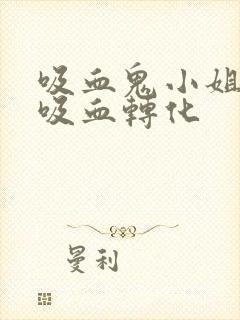 吸血鬼小姐
吸血轉化
曼利